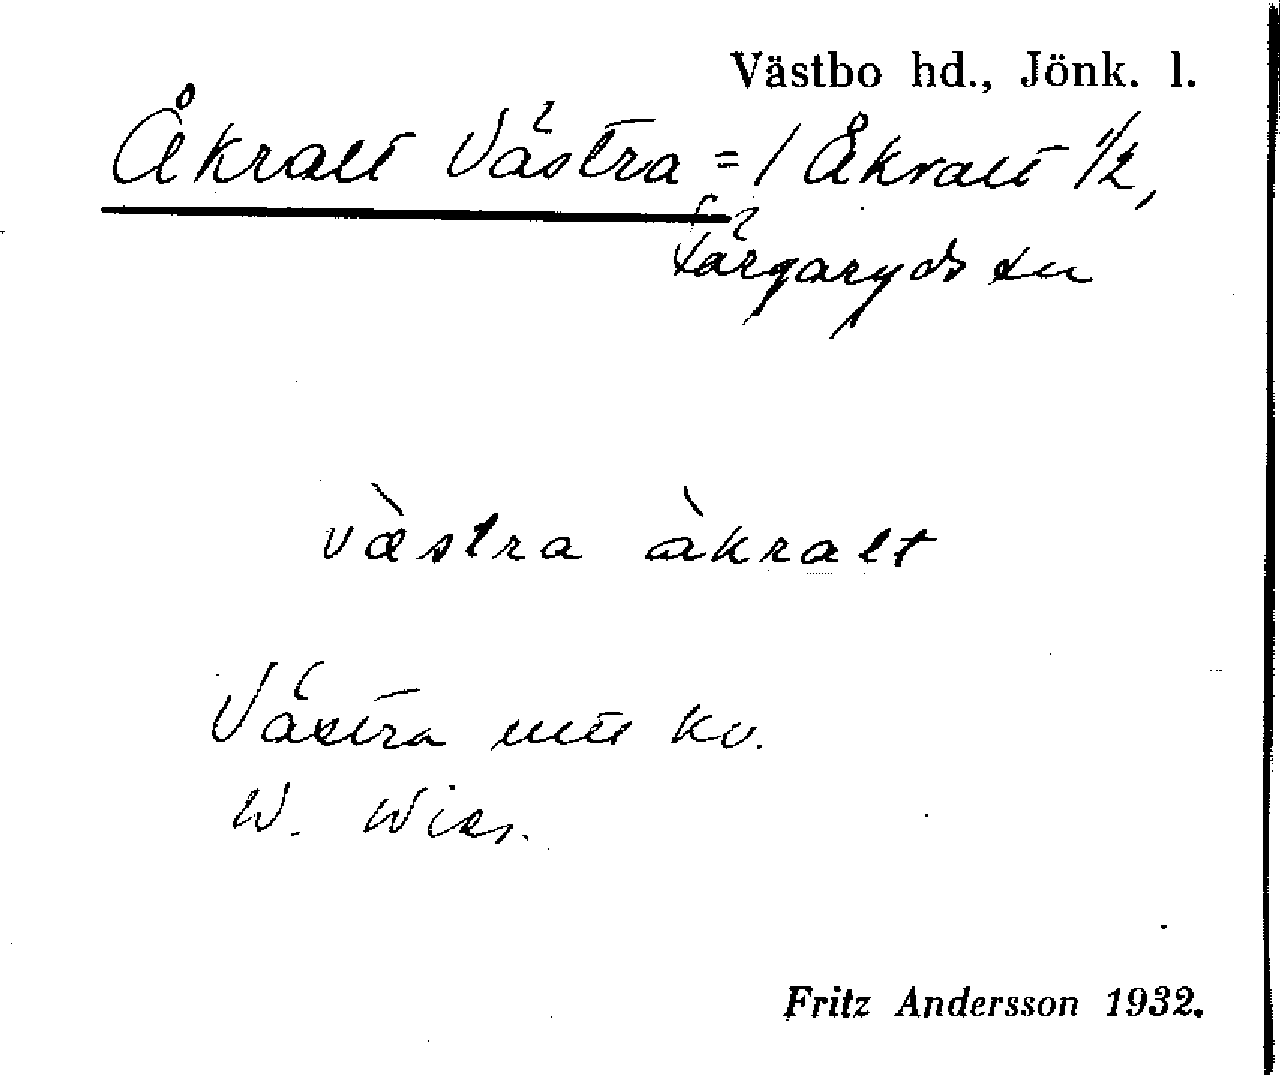 Västbo hd., Jönk. l.
Åkralt Västra = / Åkralt 1/2,
Färgaryds sn
västra åkralt
Västra kv.
W.
Fritz Andersson 1932.